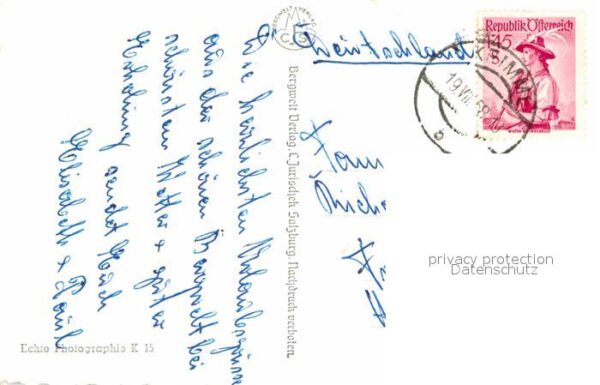 Die herzlichsten Urlaubsgrüsse
aus der schönen Bergwelt bei
schönstem Wetter & guter
Erholung sendet Euch
Elisabeth & Paul
Echte Photographie K 15
Bergwelt Verlag, C. Jurischek Salzburg. Nachdruck verboten.
BERGWELT VERLAG
CJS
Deutschland
Republik Österreich
1.45
19.VII.58
b
Fam
privacy protection
Datenschutz